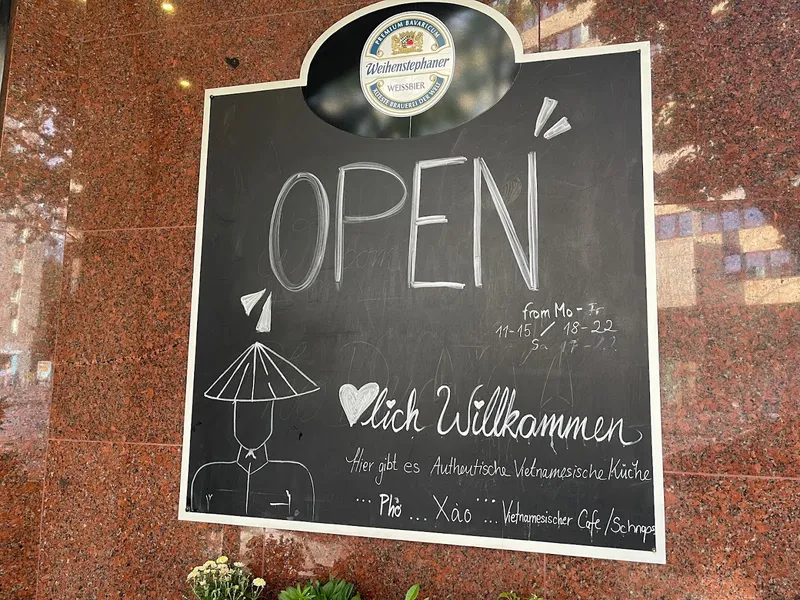 PREMIUM BAVARICUM
Weihenstephaner
WEISSBIER
ÄLTESTE BRAUEREI DER WELT
OPEN
from Mo - Fr
11-15 / 18-22
Sa 17 -
♥lich Willkammen
Hier gibt es Authentische Vietnamesische Küche
... Phở ... Xào ... Vietnamesischer Cafe/Schnaps